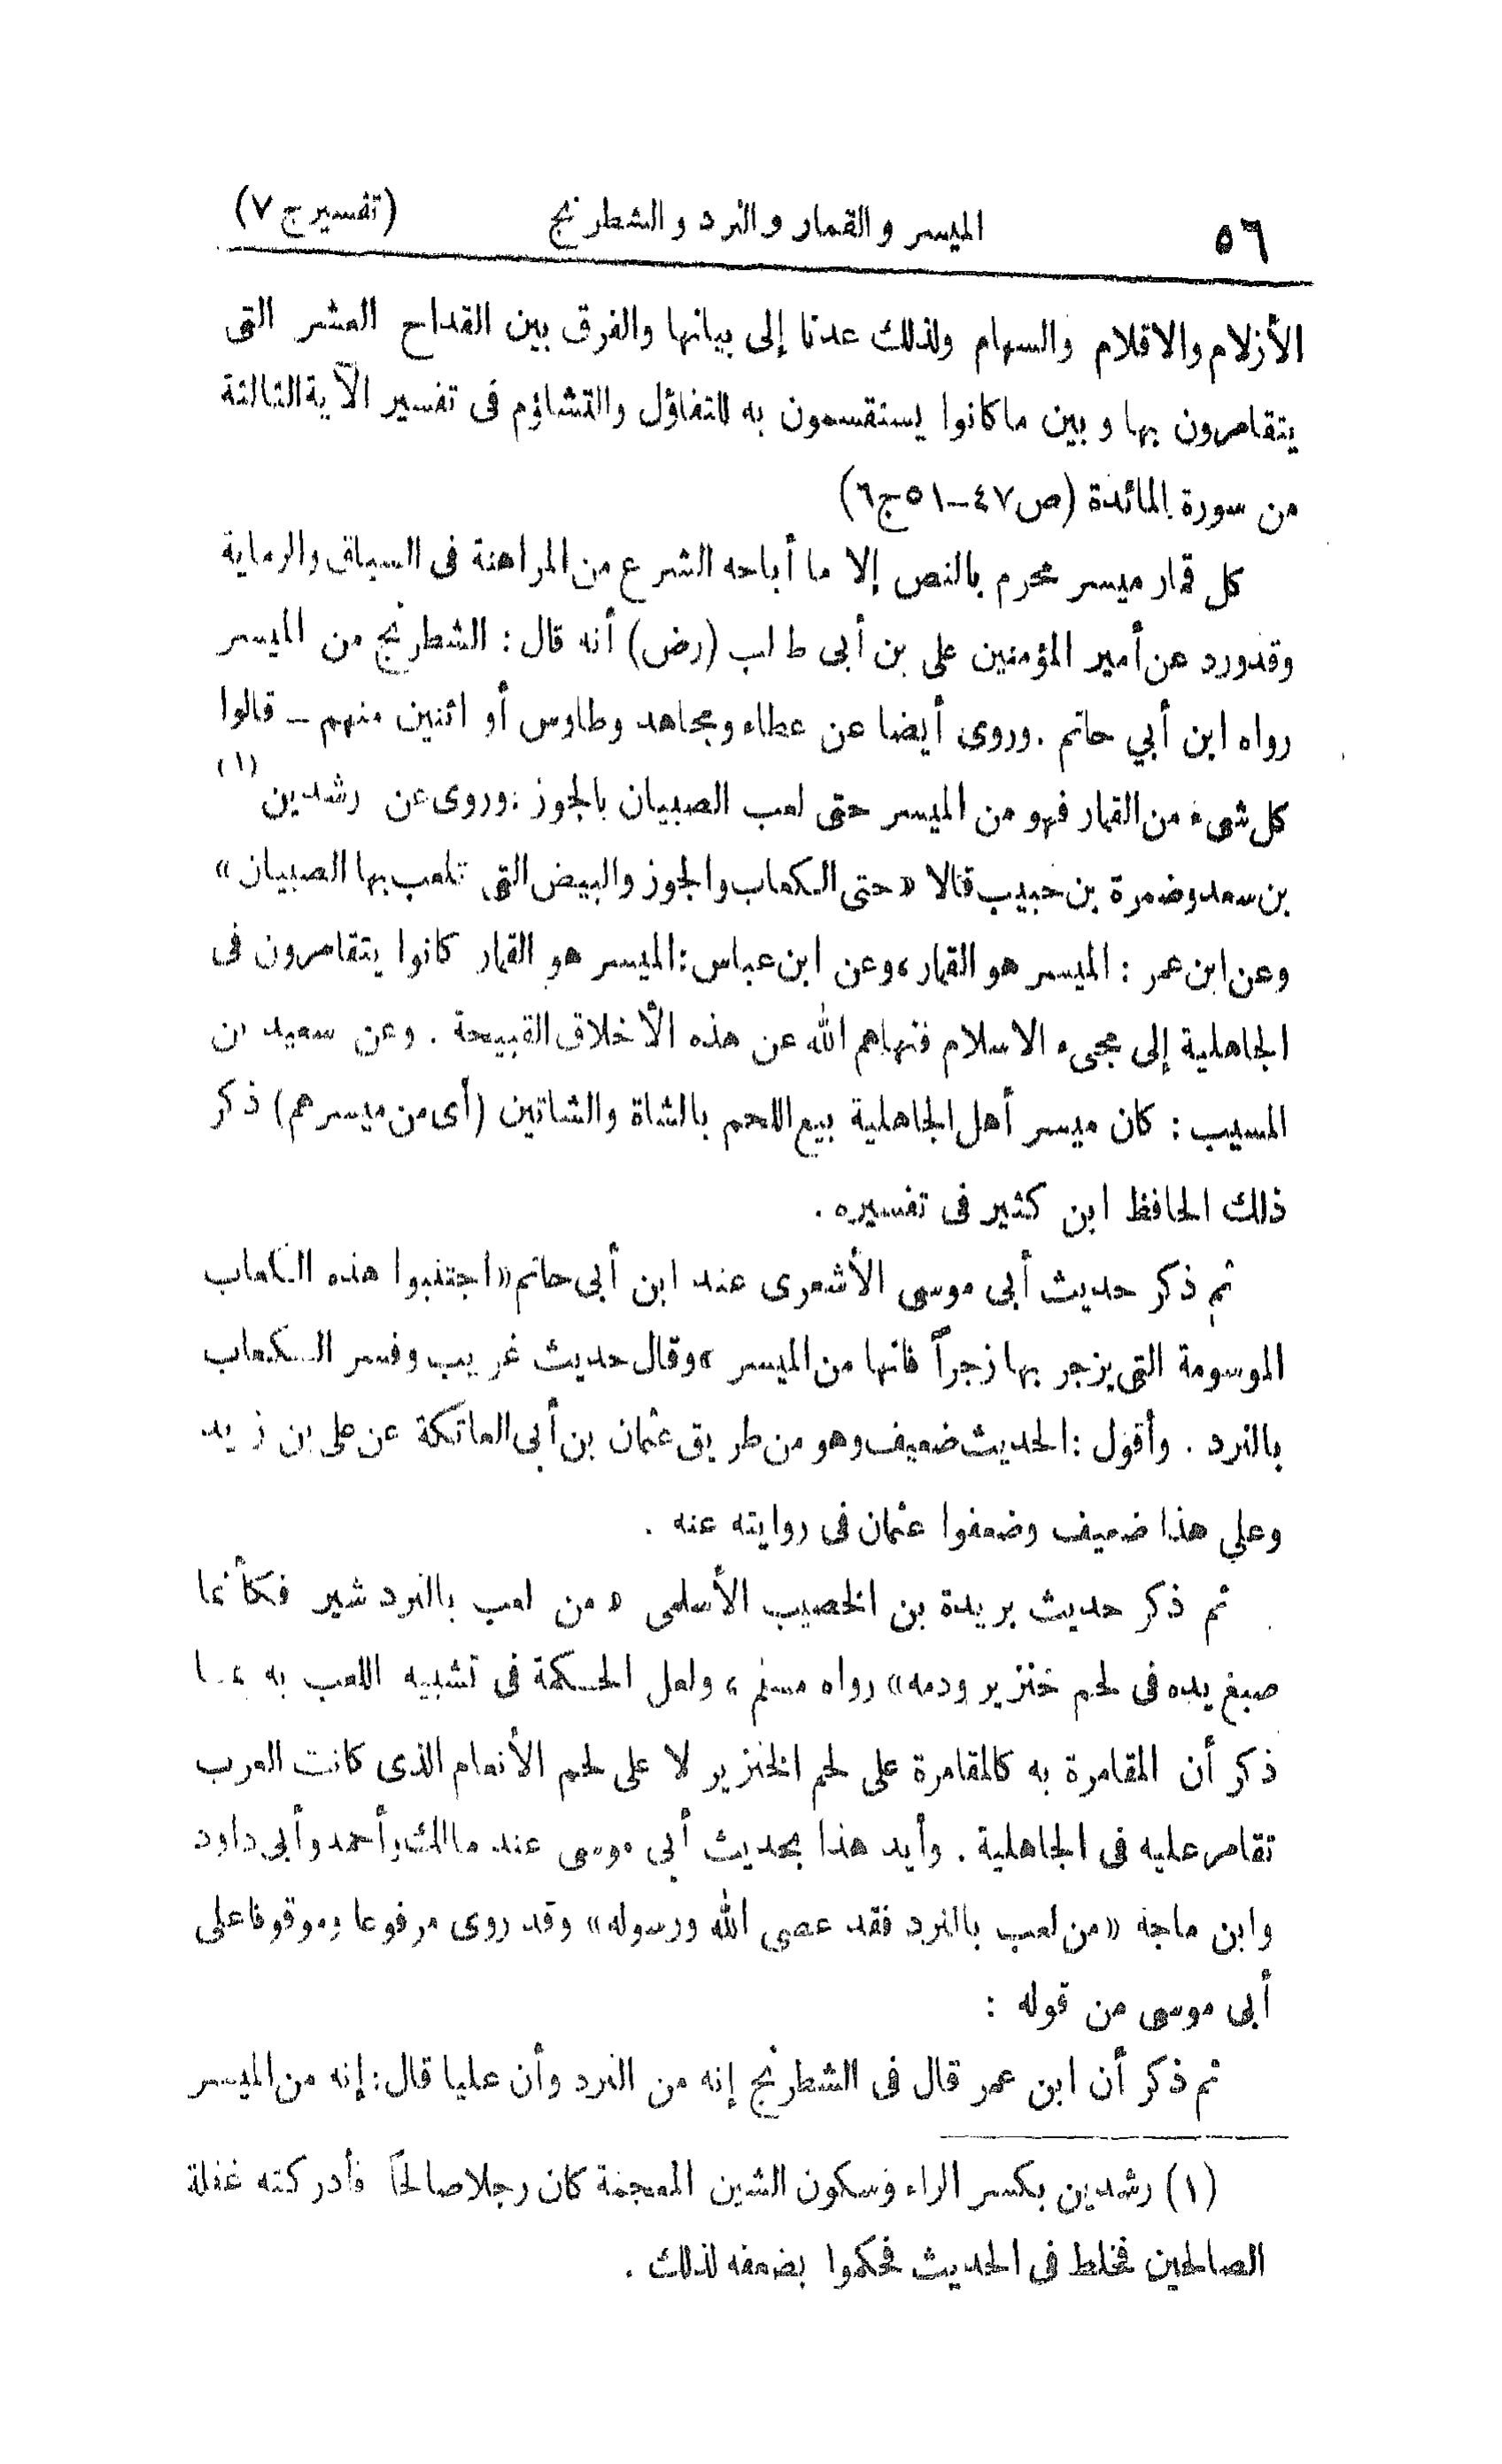 ٥٦ الميسر والقمار والنرد والشطرنج (تفسير ج ٧)
الأزلام والاقلام والسهام ولذلك عدنا إلى بيانها والفرق بين القداح العشر التى
يتقامرون بها وبين ما كانوا يستقسمون به للتفاؤل والتشاؤم فى تفسير الآية الثالثة
من سورة المائدة (ص ٤٧ــ٥١ ج ٦)
كل قمار ميسر محرم بالنص إلا ما أباحه الشرع من المراهنة فى السباق والرماية
وقد ورد عن أمير المؤمنين على بن أبى طالب (رض) أنه قال : الشطرنج من الميسر
رواه ابن أبي حاتم . وروى أيضا عن عطاء ومجاهد وطاوس أو اثنين منهم ــ قالوا
كل شىء من القمار فهو من الميسر حتى لعب الصبيان بالجوز : وروى عن رشدين (١)
بن سعد وضمرة بن حبيب قالا « حتى الكعاب والجوز والبيض التى تلعب بها الصبيان »
وعن ابن عمر : الميسر هو القمار ، وعن ابن عباس : الميسر هو القمار كانوا يتقامرون فى
الجاهلية إلى مجىء الاسلام فنهاهم الله عن هذه الأخلاق القبيحة . وعن سعيد بن
المسيب : كان ميسر أهل الجاهلية بيع اللحم بالشاة والشاتين (أى من ميسرهم) ذكر
ذلك الحافظ ابن كثير فى تفسيره .
ثم ذكر حديث أبى موسى الأشعرى عند ابن أبى حاتم « اجتنبوا هذه الكعاب
الموسومة التى يزجر بها زجراً فانها من الميسر » وقال حديث غريب وفسر الكعاب
بالنرد . وأقول : الحديث ضعيف وهو من طريق عثمان بن أبى العاتكة عن على بن زيد
وعلي هذا ضعيف وضعفوا عثمان فى روايته عنه .
ثم ذكر حديث بريدة بن الخصيب الأسلمى « من لعب بالنردشير فكأنما
صبغ يده فى لحم خنزير ودمه » رواه مسلم ، ولعل الحكمة فى تشبيه اللعب به بما
ذكر أن المقامرة به كالمقامرة على لحم الخنزير لا على لحم الأنعام الذى كانت العرب
تقامر عليه فى الجاهلية . وأيد هذا بحديث أبى موسى عند مالك وأحمد وأبى داود
وابن ماجه « من لعب بالنرد فقد عصى الله ورسوله » وقد روى مرفوعا وموقوفا على
أبى موسى من قوله :
ثم ذكر أن ابن عمر قال فى الشطرنج إنه من النرد وأن عليا قال : إنه من الميسر
(١) رشدين بكسر الراء وسكون الشين المعجمة كان رجلا صالحاً فأدركته غفلة
الصالحين فخلط فى الحديث فحكموا بضعفه لذلك .